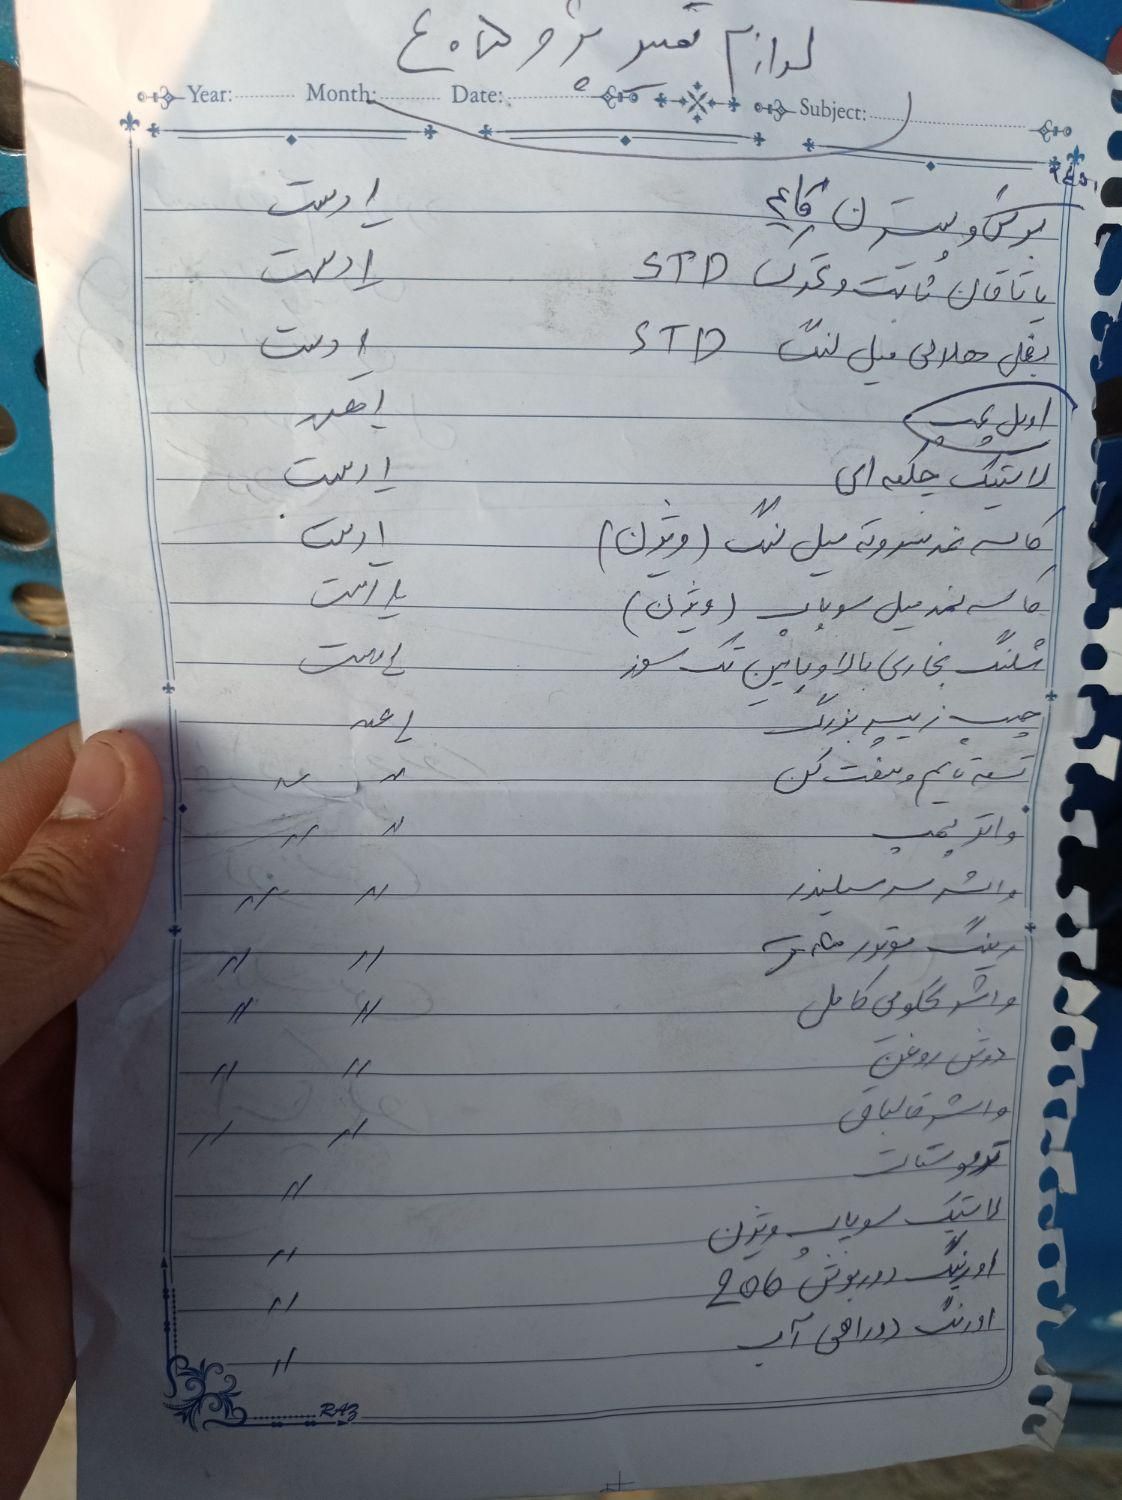 لوازم تعمیر پژو ۴۰۵
Year: Month: Date: Subject:
بوش و پیستون ۱ دست
یاتاقان ثابت و متحرک STD ۱ دست
بغل هلالی میل لنگ STD ۱ دست
اویل پمپ ۱ عدد
لاستیک چکمه ای ۱ دست
کاسه نمد سروته میل لنگ (ویتون) ۱ دست
کاسه نمد میل سوپاپ (ویتون) ۱ دست
شلنگ بخاری بالا و پایین تک سوز ۱ دست
چسب زیپر بزرگ ۱ عدد
تسمه تایم و سفت کن 〃 〃
واتر پمپ 〃 〃
واشر سرسیلندر 〃 〃
رینگ موتور 〃 〃
واشر گلویی کامل 〃 〃
دوش روغن 〃 〃
واشر قالپاق 〃 〃
ترموستات 〃
لاستیک سوپاپ ویتون 〃
اورینگ دور بوش 206 〃
اورنگ دوراهی آب 〃
RAZ